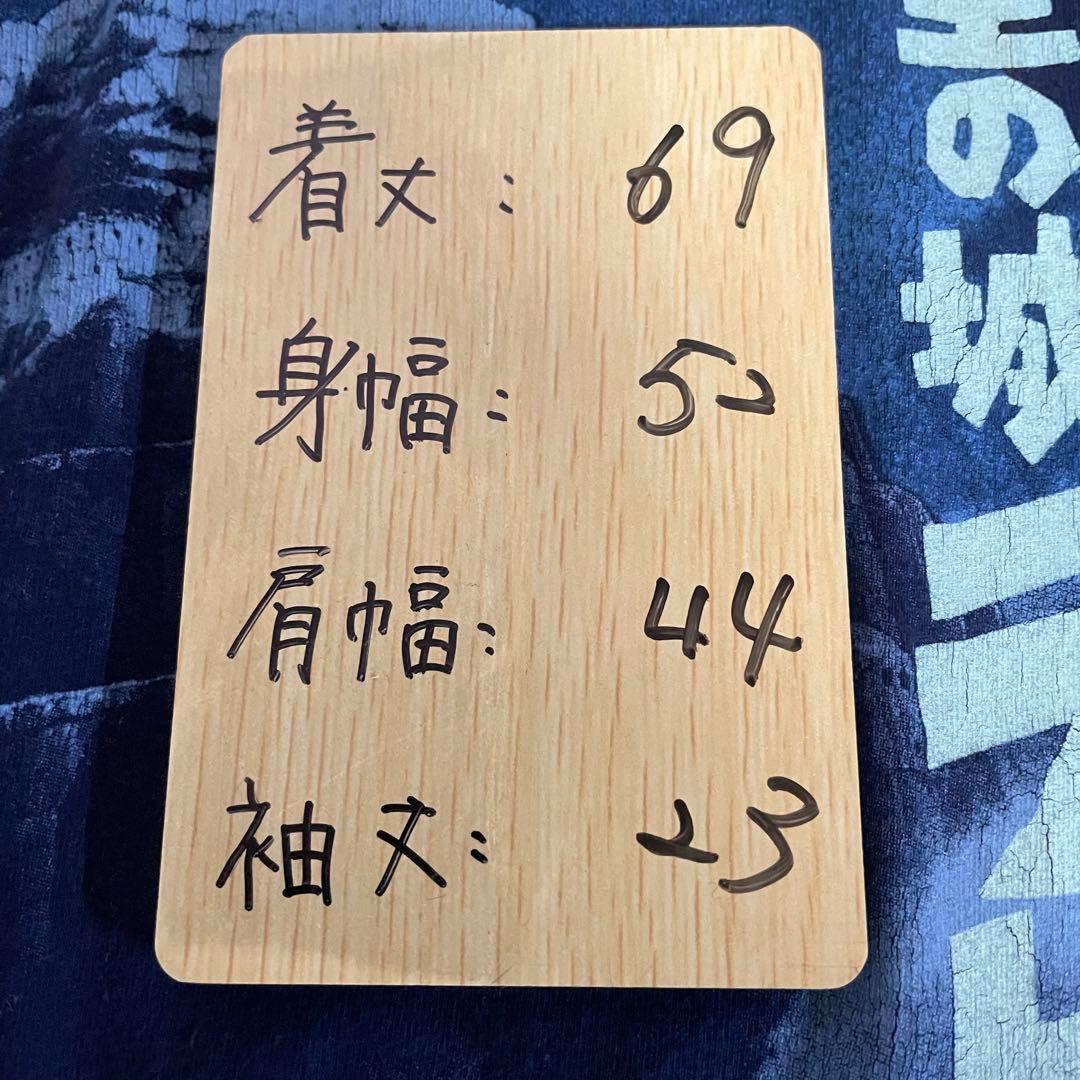 着丈: 69
身幅: 52
肩幅: 44
袖丈: 23